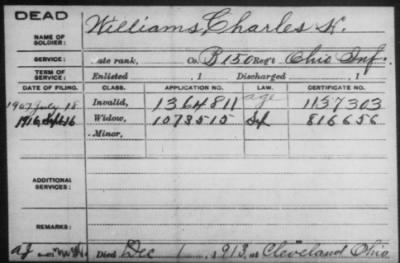 DEAD
NAME OF SOLDIER: Williams, Charles H.
SERVICE: ate rank, Co. B 150 Reg't Ohio Inf.
TERM OF SERVICE: Enlisted , 1 Discharged , 1
DATE OF FILING. CLASS. APPLICATION NO. LAW. CERTIFICATE NO.
1907 July 18 Invalid, 1364811 age 1137303
1916 Sept 16 Widow, 1073515 816656
Minor,
ADDITIONAL SERVICES:
REMARKS:
Died Dec 1, 1913, at Cleveland Ohio